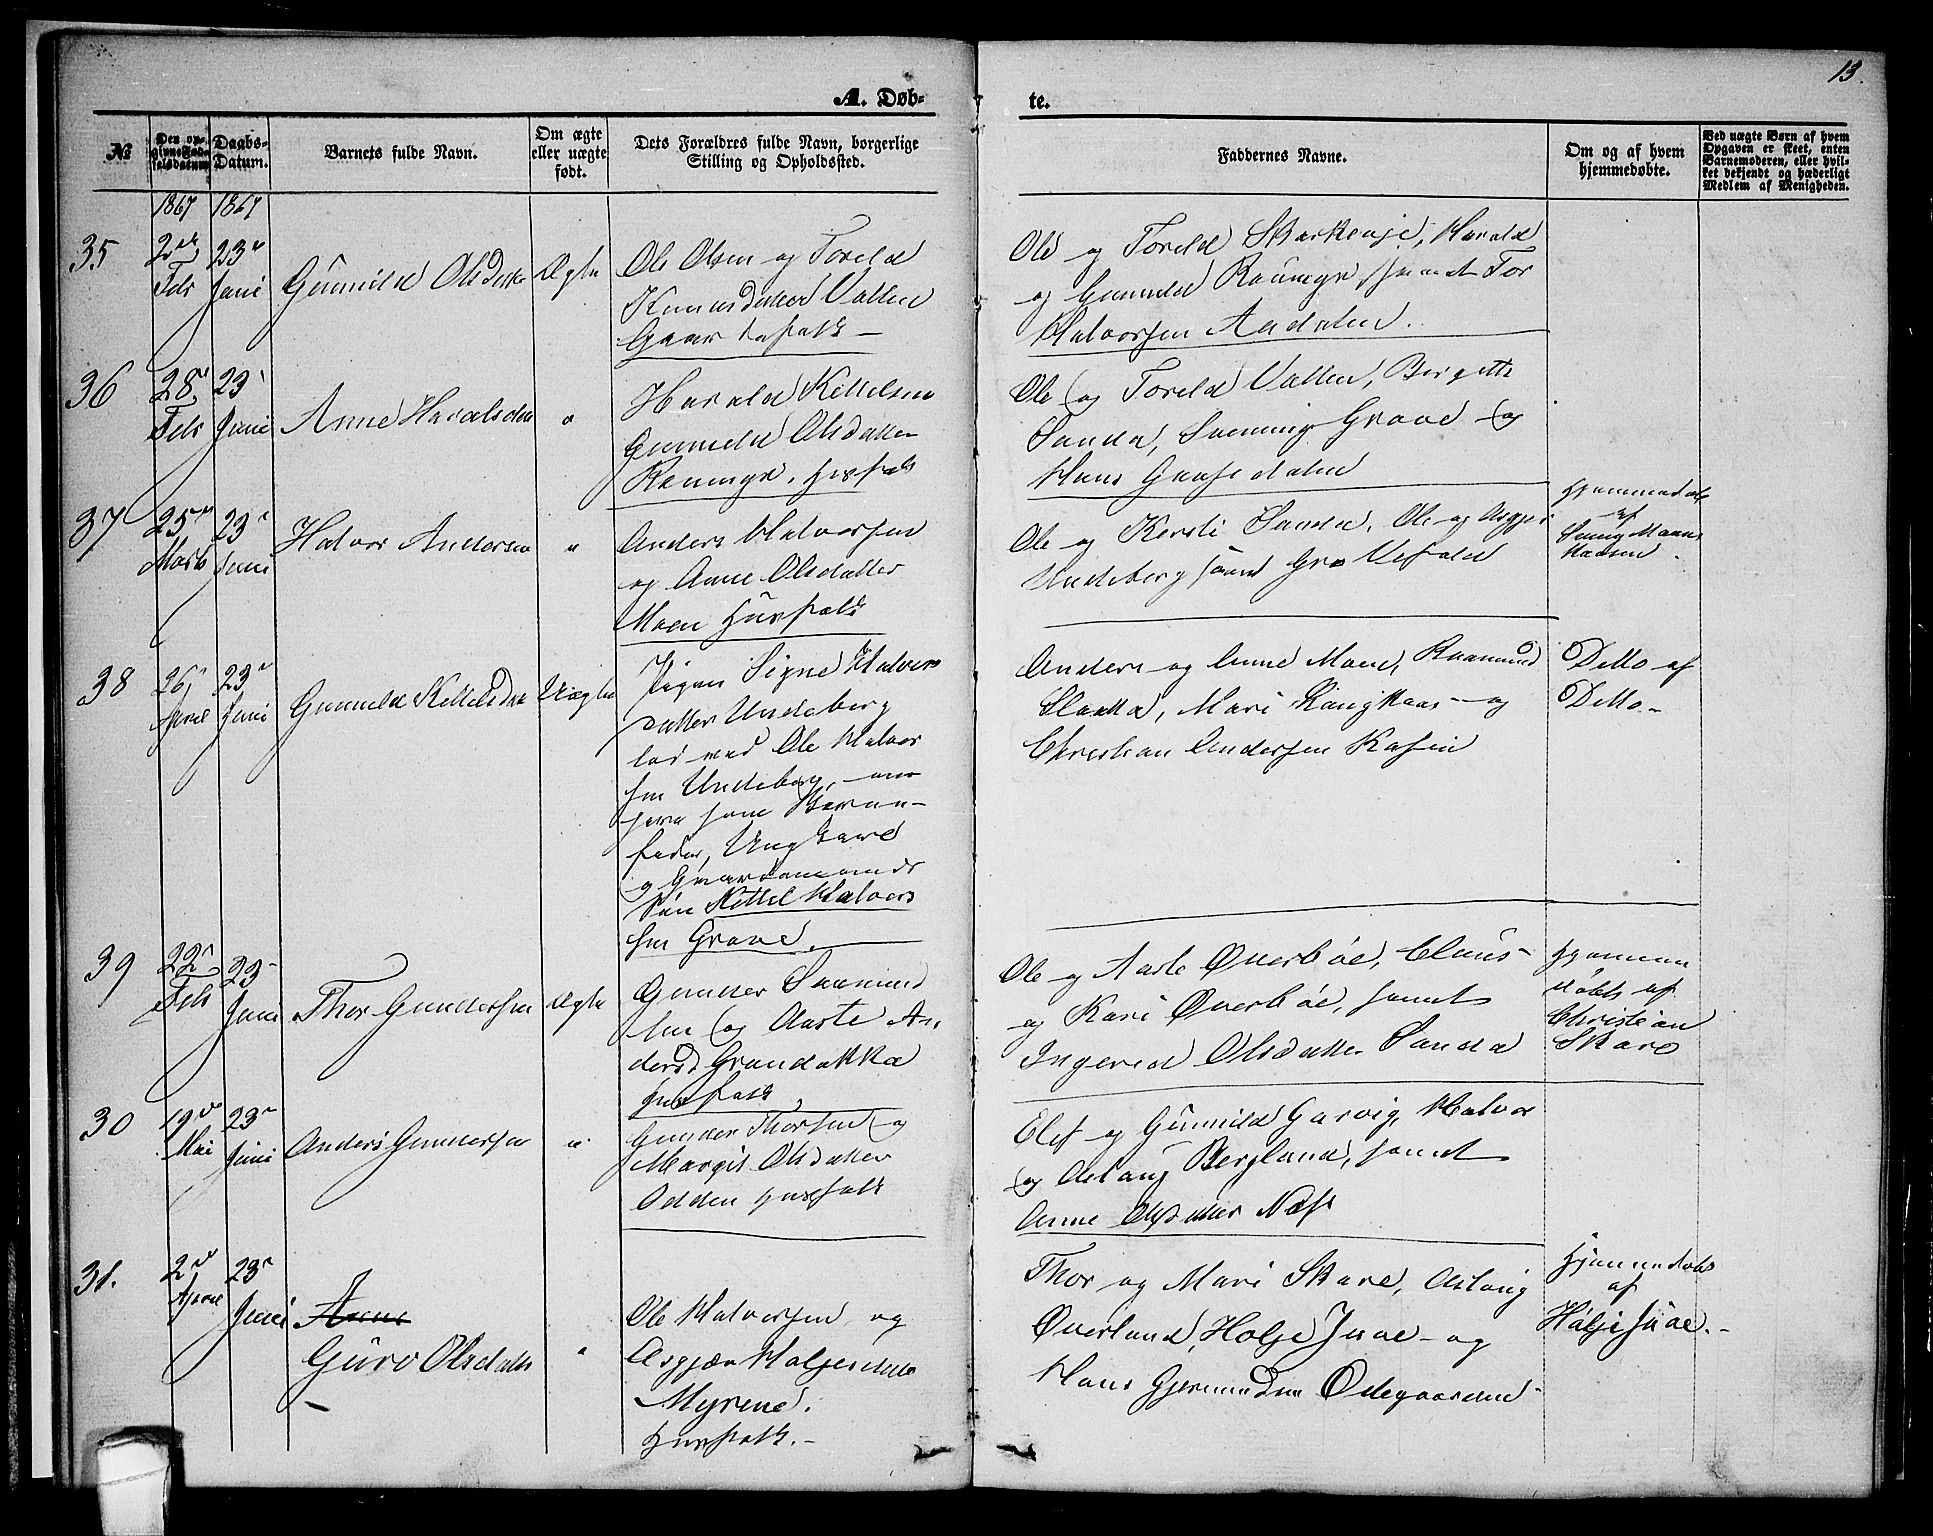 13.
A. Døb-
te.
№
Den op-
givne Fød-
selsdatum
Daabs-
Datum.
Barnets fulde Navn.
Om ægte
eller uægte
født.
Dets Forældres fulde Navn, borgerlige
Stilling og Opholdssted.
Faddernes Navne.
Om og af hvem
hjemmedøbte.
Ved uægte Børn af hvem
Opgaven er skeet, enten
Barnemoderen, eller hvil-
ket bekjendt og hæderligt
Medlem af Menigheden.
1867 1867
35
2
Feb
23
Juni
Gunnild Olsdatter
Ægte
Ole Olsen og Torild
Knudsdatter Vallen
Gaardfolk
Ole og Torild Skarkenje, Harald
og Gunnild Raumyr samt Tor
Halvorsen Aadalen.
36
28
Feb
23
Juni
Anne Haralsdatter
"
Harald Kittelsen
Gunnild Olsdatter
Raumyr, Husfolk
Ole og Torild Vallen, Birgitte
Sanda, Grave og
Hans Gaasedalen
37
25
Marts
23
Juni
Halvor Andersen
"
Anders Halvorsen
og Anne Olsdatter
Moen Husfolk
Ole og Kersti Sanda, Ole og Asgjer
Undeberg samt Gro Vefald
Hjemmedøbt
af
38
26
April
23
Juni
Gunnild Kittelsdatter
Uægte
Pigen Signe Halvors
datter Undeberg
hos Ole Halvor
sen Undeberg,
som Barne-
fader, Ungkarl
og Gaardmands
Søn Kittel Halvor
sen Grave.
Anders og Anne Moen, Raamund
Slaatta, Mari Ringhaas og
Christian Andersen Kasin
Ditto af
Ditto.
39
22
Feb
23
Juni
Thor Gundersen
Ægte
Gunder Saamund
sen og Aaste An
dersd Grandokka
Husfolk
Ole og Aaste Øverbøe, Claus
og Kari Øverbøe, samt
Ingerid Olsdatter Sanda
Hjemme
døbt af
Christian
Skare
30
19
Mai
23
Juni
Anders Gundersen
"
Gunder Thorsen og
Margit Olsdatter
Odden Husfolk
Elef og Gunnild Garvig, Halvor
og Aslaug Bergland, samt
Anne Olsdatter Næss
31.
2
April
23
Juni
Anne
Guro Olsdatter
"
Ole Halvorsen og
Asgjær Holjesdatter
Myrene.
Husfolk.
Thor og Mari Skare, Aslaug
Øverland, Holje Juve og
Hans Gjermundsen Ødegaarden
Hjemmedøbt
af
Holje Juve.